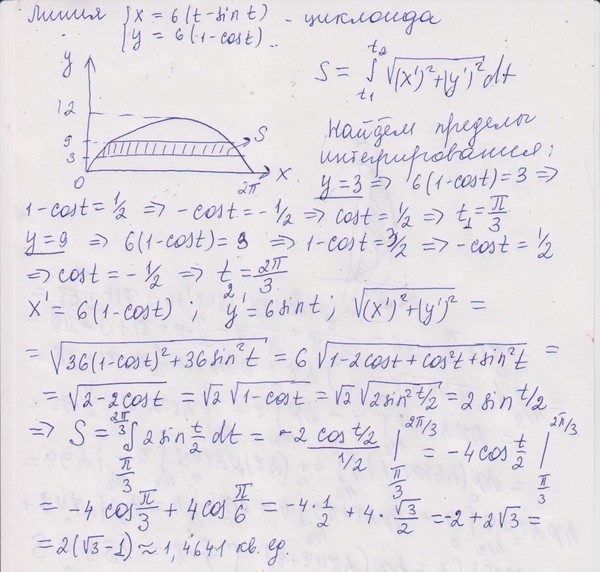 Линия { x = 6(t-sint) - циклоида
{ y = 6(1-cost)
y
12
9
3
0
S
x
2π
S = ∫ t₁ t₂ √((x')²+(y')²) dt
Найдем пределы
интегрирования:
y=3 ⇒ 6(1-cost)=3 ⇒
1-cost=1/2 ⇒ -cost=-1/2 ⇒ cost=1/2 ⇒ t₁=π/3
y=9 ⇒ 6(1-cost)=9 ⇒ 1-cost=3/2 ⇒ -cost=1/2
⇒ cost=-1/2 ⇒ t₂=2π/3
x'=6(1-cost) ; y'=6sint ; √((x')²+(y')²) =
= √(36(1-cost)²+36sin²t) = 6√(1-2cost+cos²t+sin²t) =
= √(2-2cost) = √2 √(1-cost) = √2 √(2sin² t/2) = 2 sin t/2
⇒ S = ∫ π/3 2π/3 2 sin t/2 dt = -2 (cos t/2)/(1/2) | π/3 2π/3 = -4 cos t/2 | π/3 2π/3
= -4 cos π/3 + 4cos π/6 = -4·1/2 + 4·√3/2 = -2+2√3 =
= 2(√3-1) ≈ 1,4641 кв. ед.